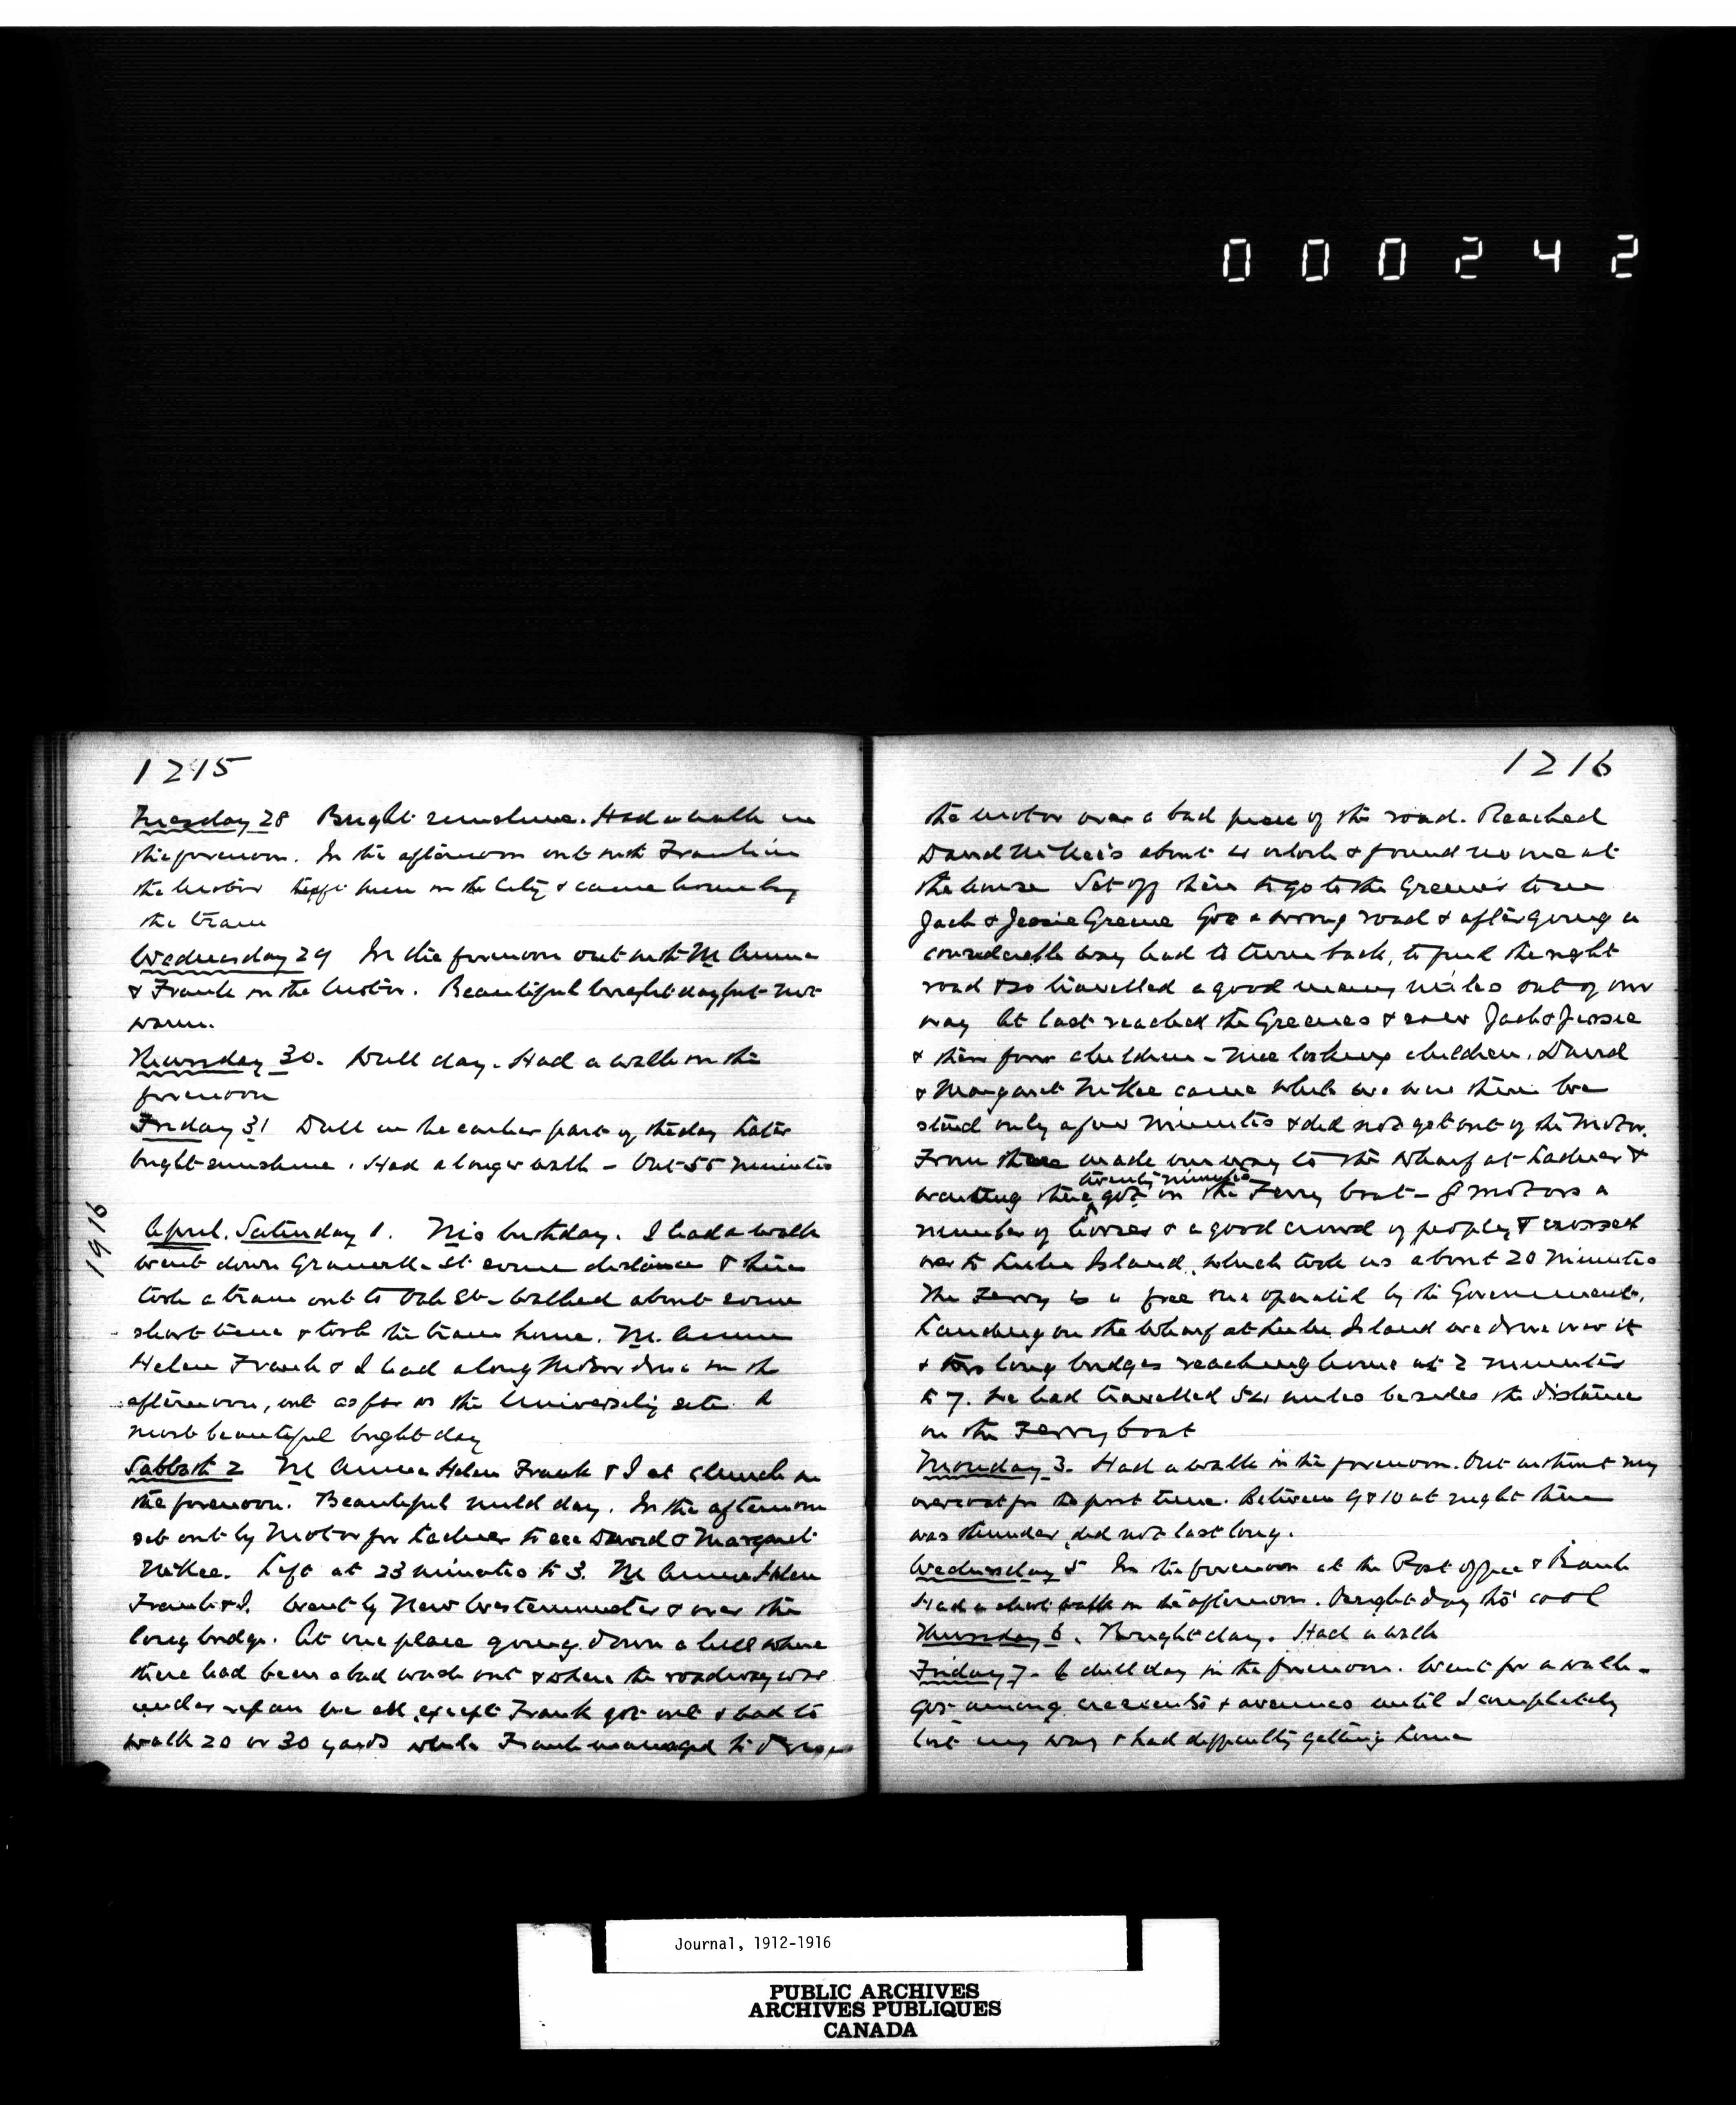 000242
1215
Tuesday 28 Bright sunshine. Had a walk in
the forenoon. In the afternoon out with Frank in
the Motor left him in the City & came home by
the tram
Wednesday 29 In the forenoon out with M Anna
& Frank in the Motor. Beautiful bright day but not
warm.
Thursday 30. Dull day. Had a walk in the
forenoon
Friday 31 Dull in the earlier part of the day Later
bright sunshine. Had a longer walk - Out 55 minutes
1916
April. Saturday 1. M's birthday. I had a walk
went down Granville St some distance & then
took a tram out to Oak St - walked about some
short time & took the tram home. M. Anna
Helen Frank & I had a long Motor drive in the
afternoon, out as far as the University site A
most beautiful bright day
Sabbath 2 M Anna Helen Frank & I at church in
the forenoon. Beautiful mild day. In the afternoon
set out by Motor for Ladner to see David & Margaret
McKee. Left at 23 minutes to 3. M Anna Helen
Frank & I. Went by New Westerminster & over the
long bridge. At one place going down a hill where
there had been a bad wash out & where the roadway was
under repair we all except Frank got out & had to
walk 20 or 30 yards while Frank managed to drive
1216
the Motor over a bad piece of the road. Reached
David McKee's about 4 oclock & found no one at
the house Set off then to go to the Greene's to see
Jack & Jessie Greene Got a wrong road & after going a
considerable way had to turn back, to find the right
road & so travelled a good many miles out of our
way At last reached the Greenes & saw Jack & Jessie
& their four children - nice looking children. David
& Margaret McKee came while we were there We
staid only a few minutes & did not get out of the Motor.
From there made our way to the wharf at Ladner &
waiting there twenty minutes got on the Ferry boat - 8 motors a
number of horses & a good crowd of people & crossed
over to Lulu Island, which took us about 20 minutes
The Ferry is a free one operated by the Government.
Landing on the wharf at Lulu Island we drove over it
& two long bridges reaching home at 2 minutes
to 7. We had travelled 54 miles besides the distance
on the Ferry boat
Monday 3. Had a walk in the forenoon. Out without my
overcoat for the first time. Between 9 & 10 at night there
was thunder, did not last long.
Wednesday 5 In the forenoon at the Post office & Bank
Had a short walk in the afternoon. Bright day tho' cool
Thursday 6. Bright day. Had a walk
Friday 7. A dull day in the forenoon. Went for a walk -
Got among crescents & avenues until I completely
lost my way & had difficulty getting home
Journal, 1912-1916
PUBLIC ARCHIVES
ARCHIVES PUBLIQUES
CANADA